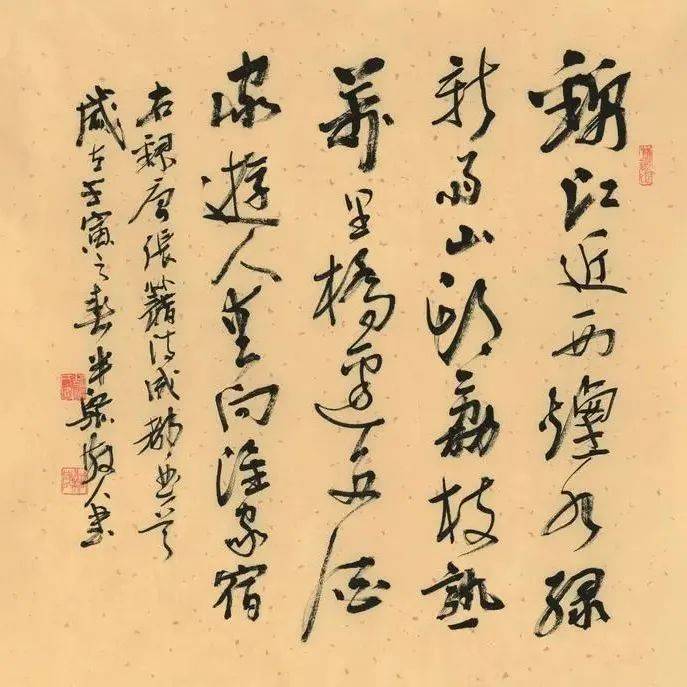 錦江近西煙水綠
新雨山頭荔枝熟
萬里橋邊多酒
家遊人愛向誰家宿
右録唐張籍诗成都曲
歲在壬寅之春半梁散人書